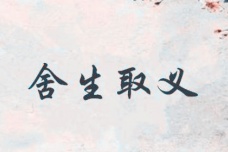 舍生取义